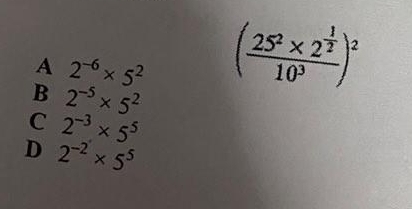 (25² × 2^½ / 10³)²
A 2⁻⁶ × 5²
B 2⁻⁵ × 5²
C 2⁻³ × 5⁵
D 2⁻² × 5⁵